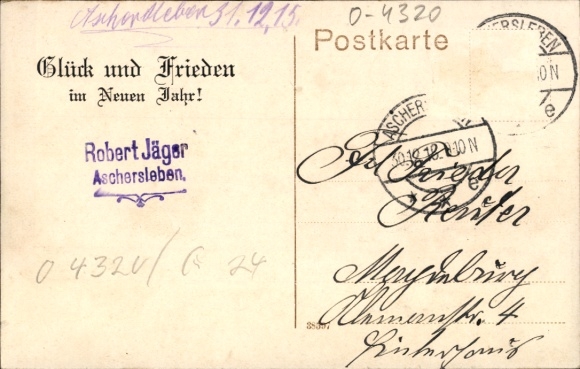 Aschersleben 31.12.15.
O-4320
Postkarte
Glück und Frieden
im Neuen Jahr!
Robert Jäger
Aschersleben.
ASCHERSLEBEN
10 N
e
ASCHERSLEBEN
30.12.18. 9-10 N
e
Frl. Frieda
Reuter
Magdeburg
Klemenstr. 4
Hinterhaus
O 4320/
24